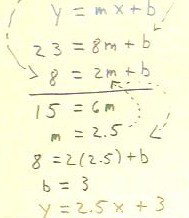 y = mx + b
23 = 8m + b
8 = 2m + b
15 = 6m
m = 2.5
8 = 2(2.5) + b
b = 3
y = 2.5x + 3